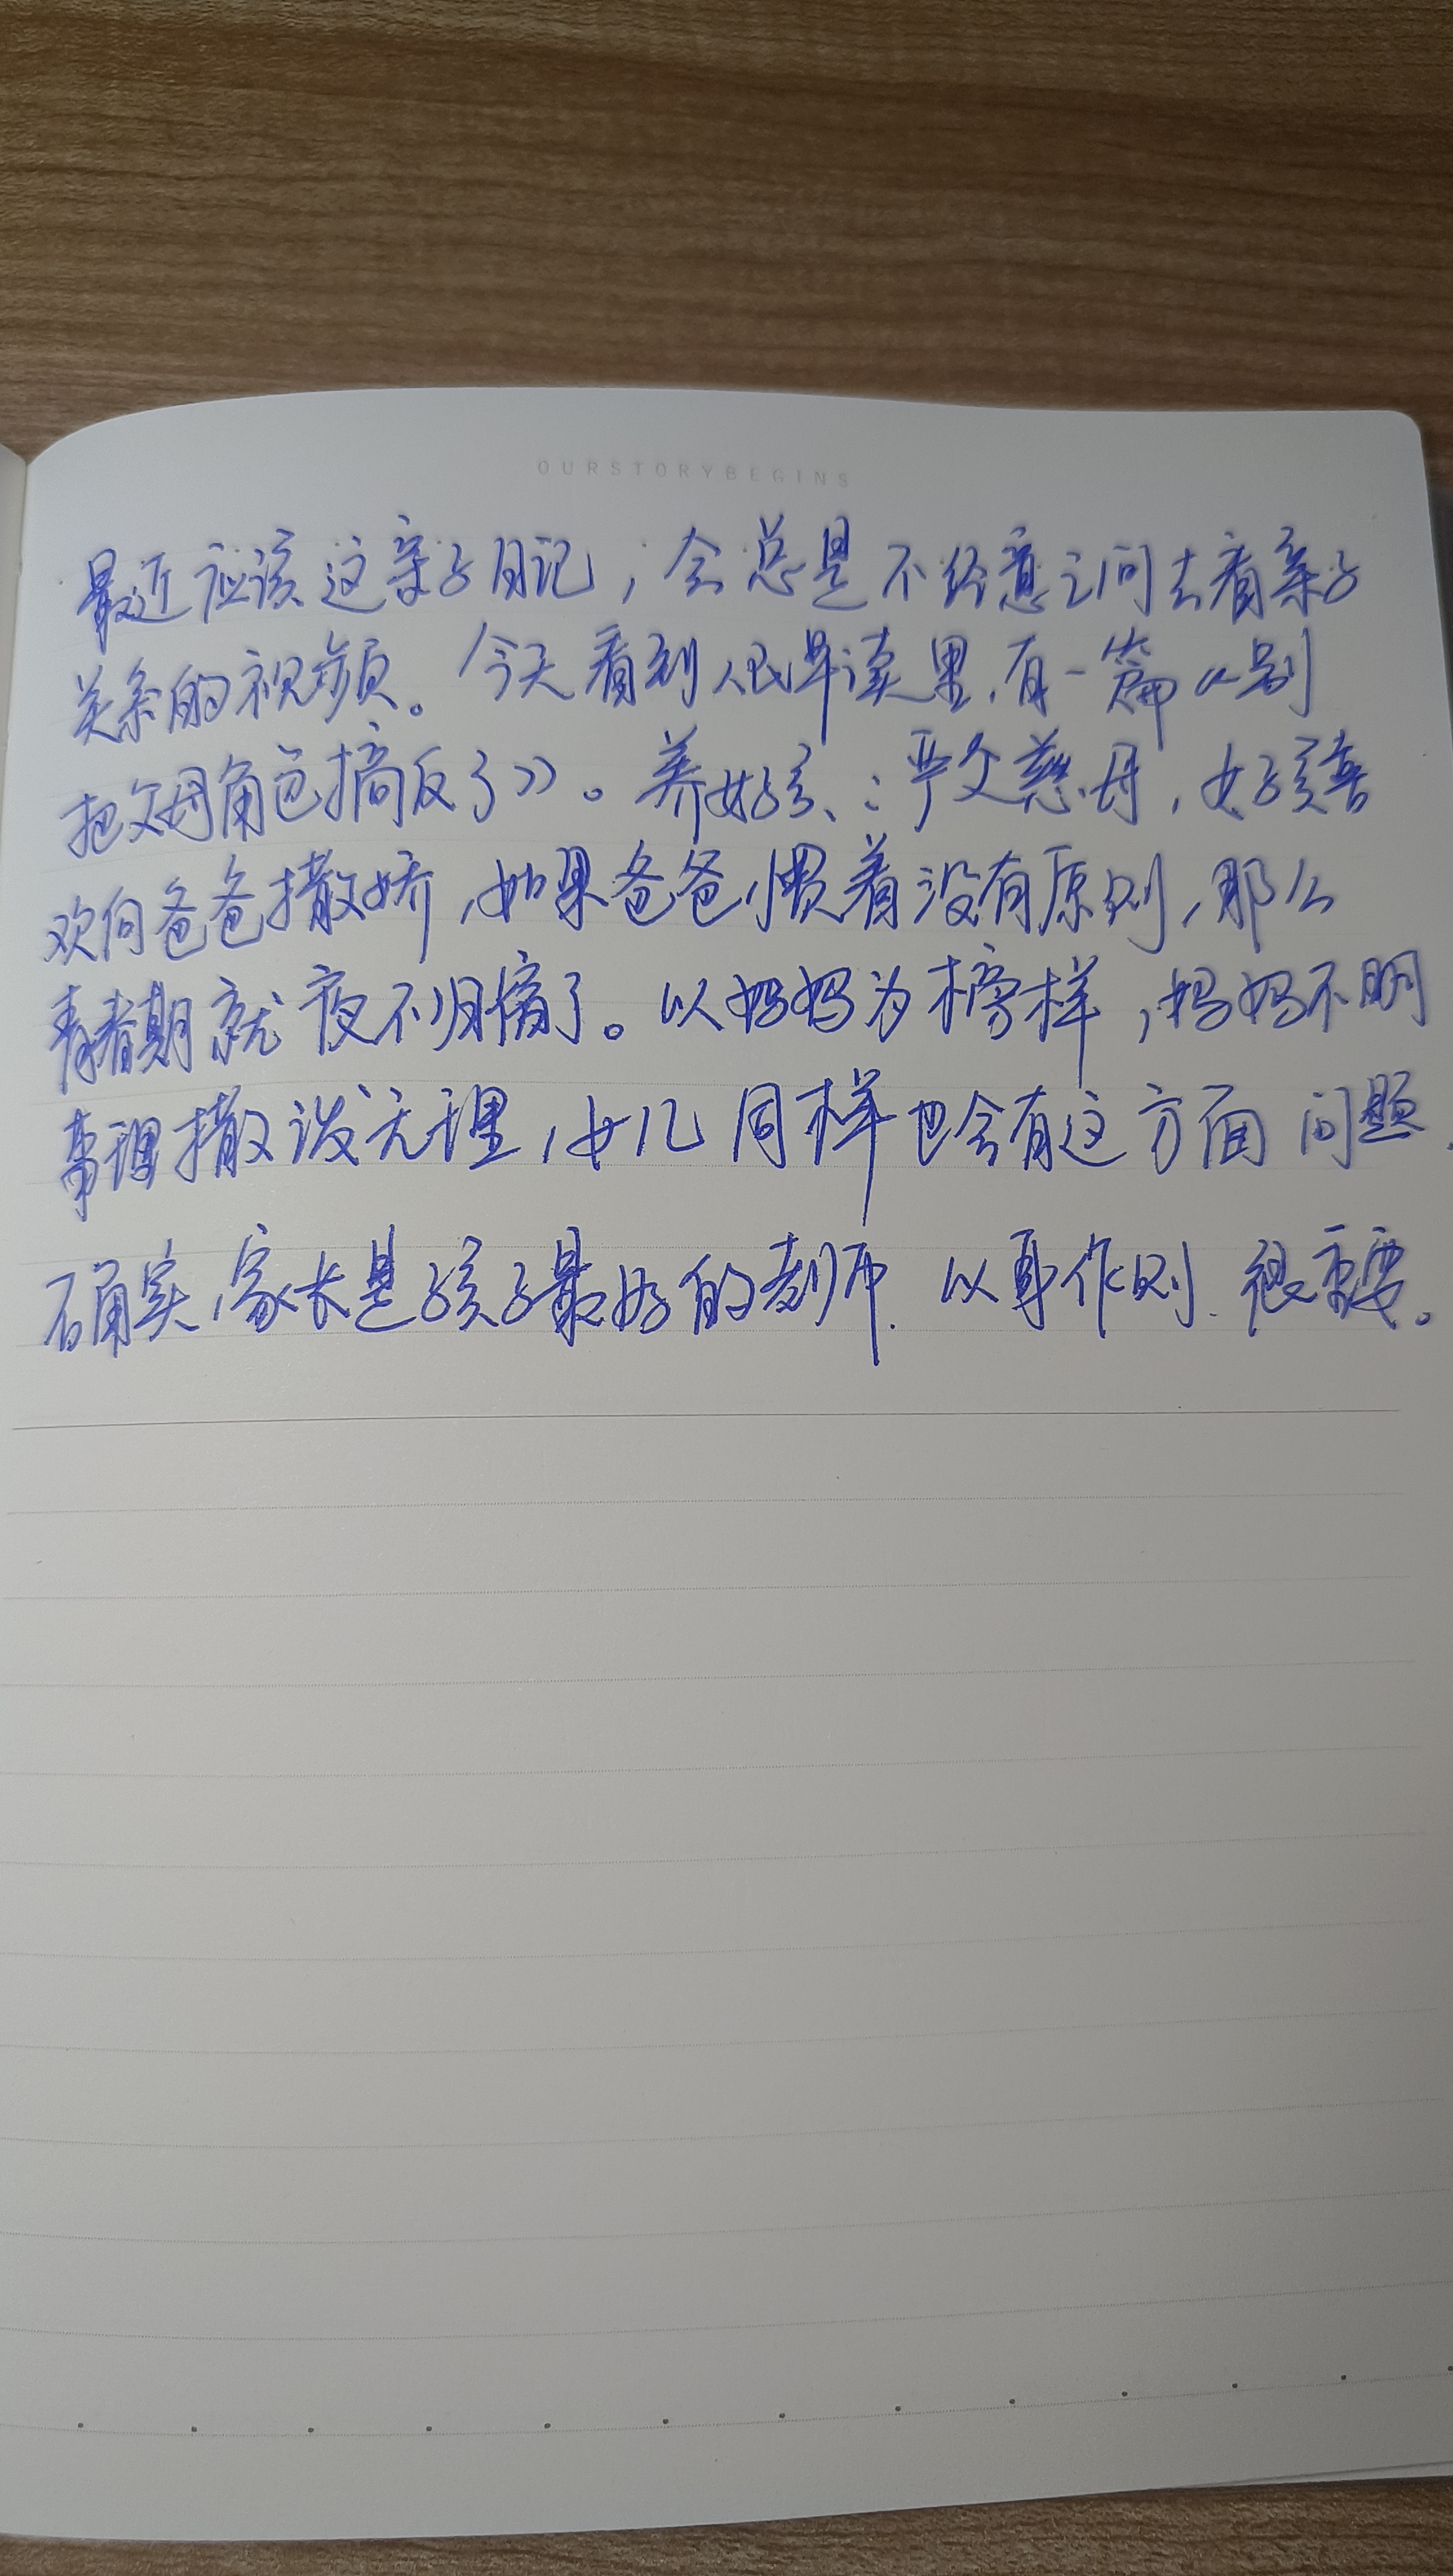 OURSTORYBEGINS
最近应该这亲子日记，会总是不经意之间去看亲子
关系的视频。今天看到人民早读里，有一篇《别
把父母角色搞反了》。养女孩：严父慈母，女孩喜
欢向爸爸撒娇，如果爸爸惯着没有原则，那么
青春期就夜不归宿了。以妈妈为榜样，妈妈不明
事理撒泼无理，女儿同样也会有这方面问题.
确实，家长是孩子最好的老师.以身作则.很重要。